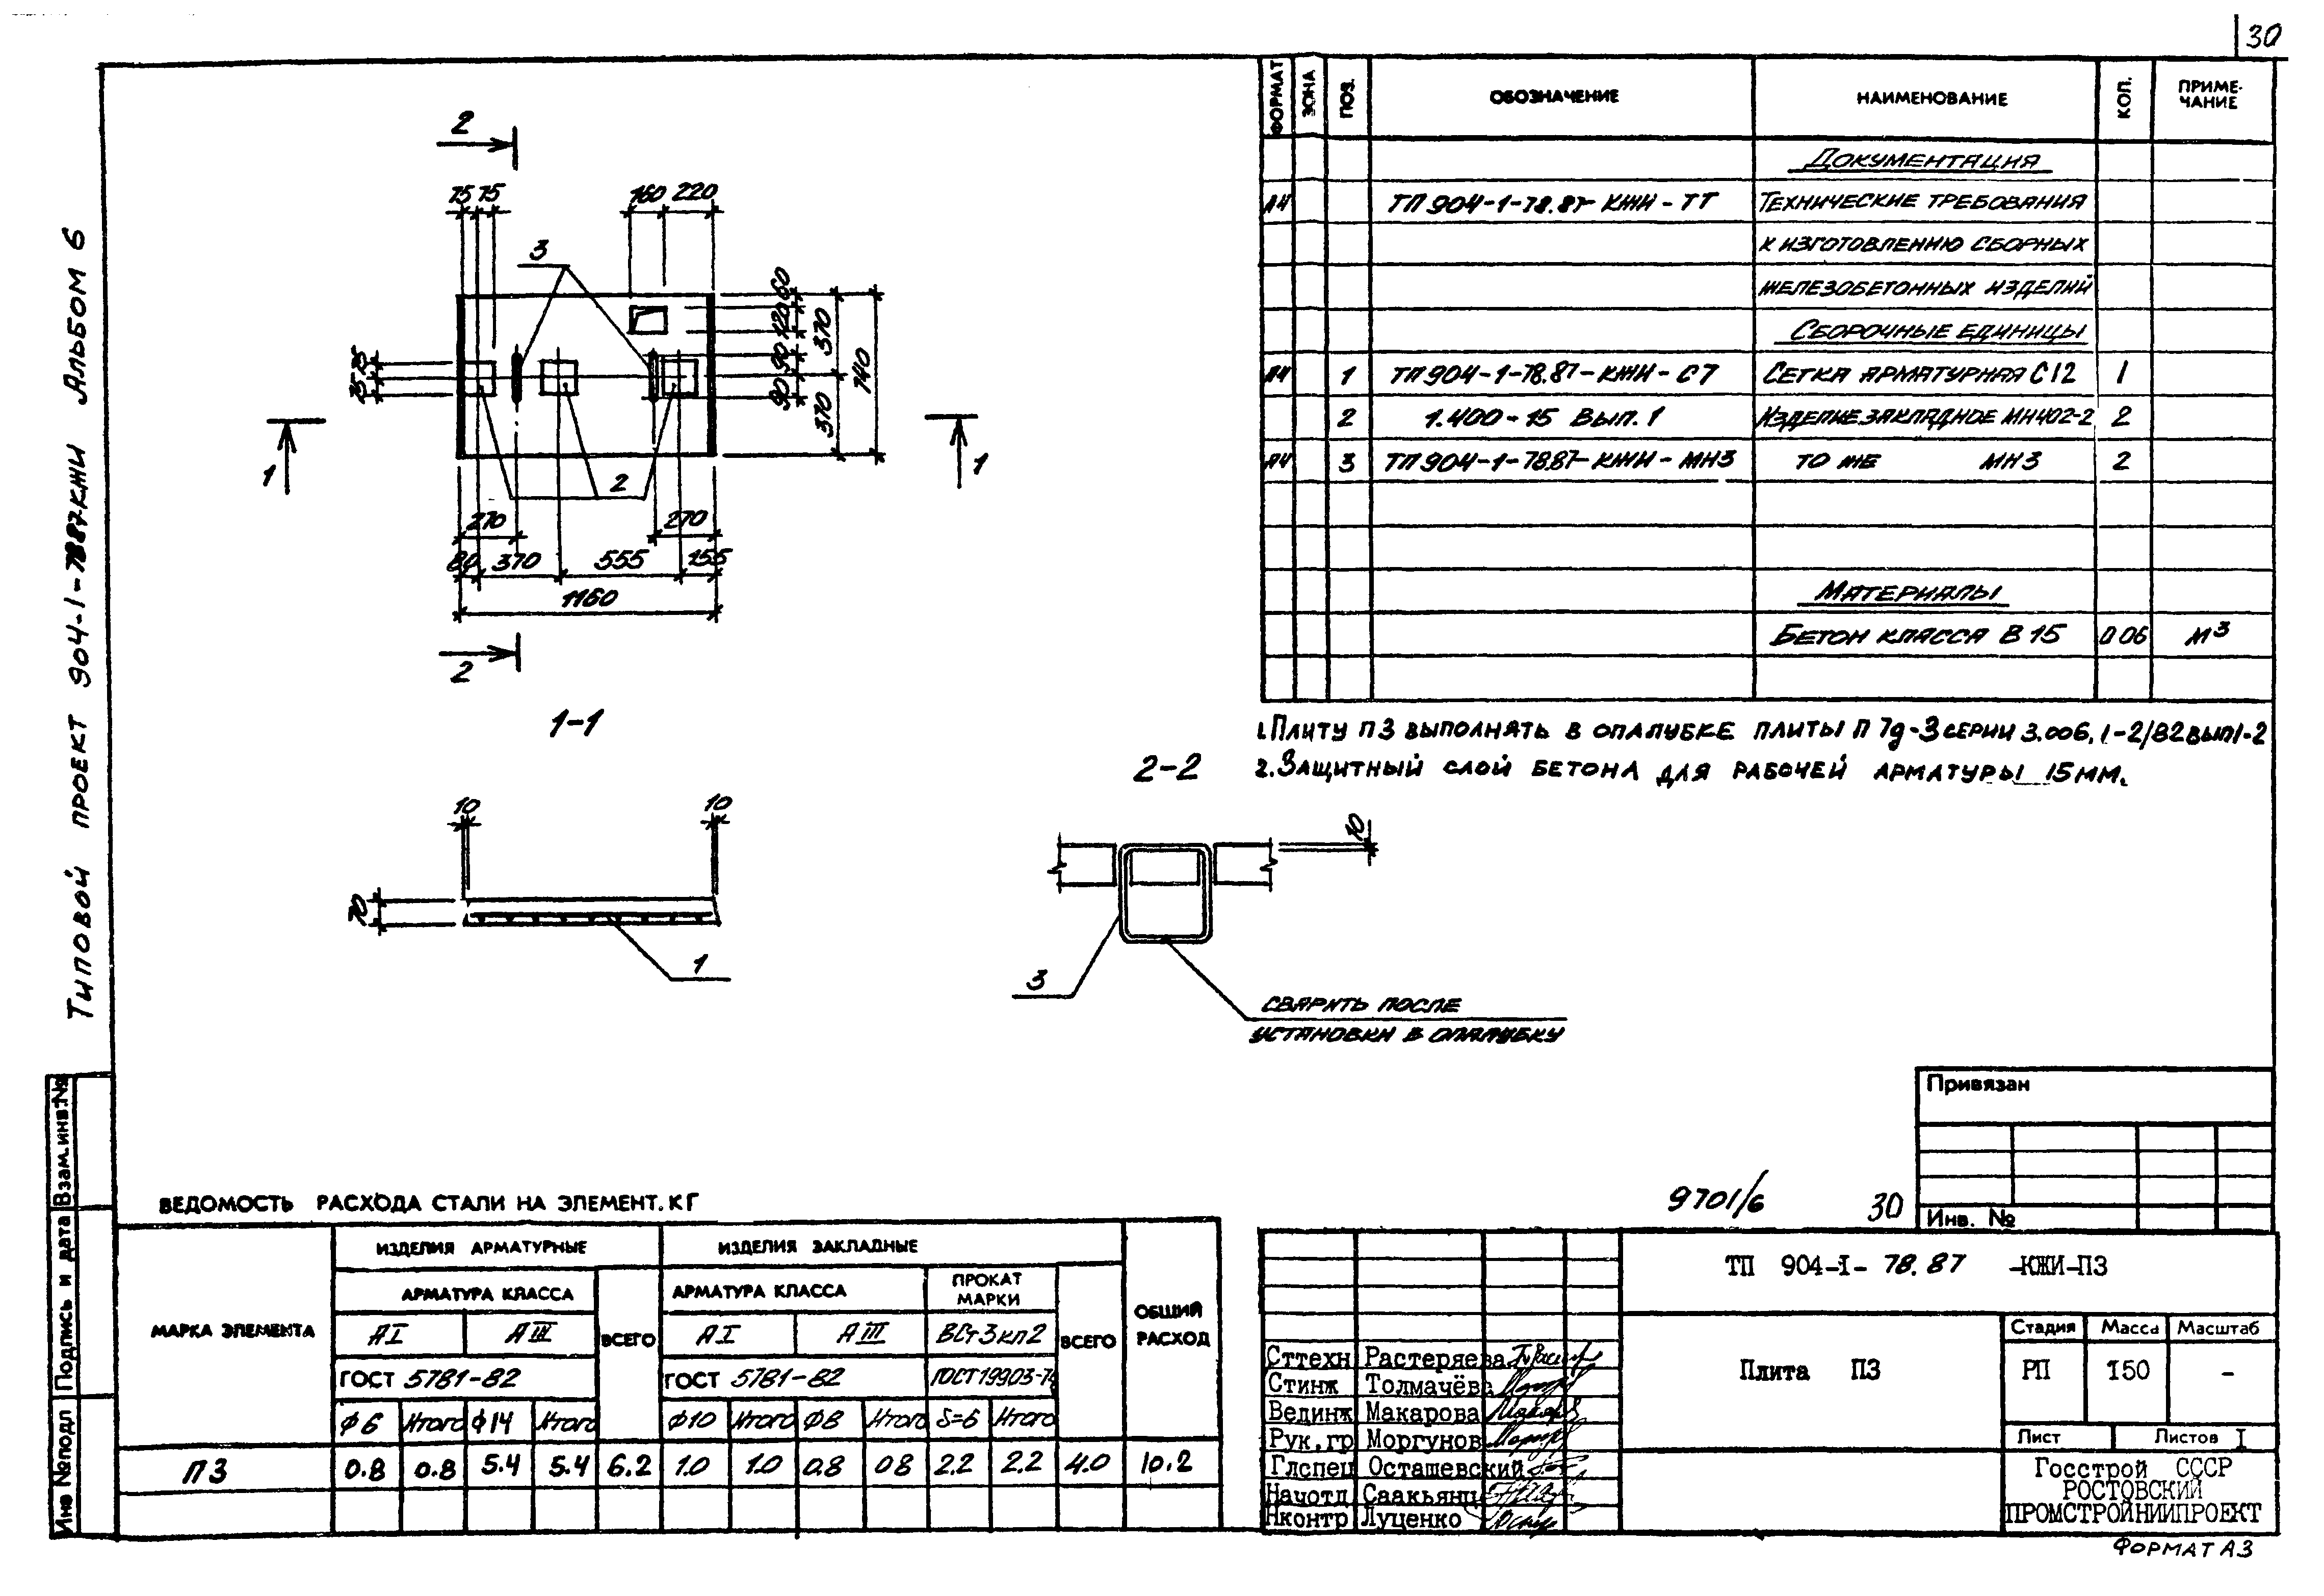 30
Типовой проект 904-1-78.87КЖИ Альбом 6
2
75 75
160 220
3
60
120
90
90
370
370
740
75 75
1
1
2
270
270
80 370 555 155
1160
2
1-1
10
10
70
1
2-2
10
3
СВАРИТЬ ПОСЛЕ
УСТАНОВКИ В ОПАЛУБКУ
ФОРМАТ ЗОНА ПОЗ. ОБОЗНАЧЕНИЕ НАИМЕНОВАНИЕ КОЛ. ПРИМЕ-
ЧАНИЕ
ДОКУМЕНТАЦИЯ
А4 ТП 904-1-78.87-КЖИ-ТТ ТЕХНИЧЕСКИЕ ТРЕБОВАНИЯ
К ИЗГОТОВЛЕНИЮ СБОРНЫХ
ЖЕЛЕЗОБЕТОННЫХ ИЗДЕЛИЙ
СБОРОЧНЫЕ ЕДИНИЦЫ
А4 1 ТП 904-1-78.87-КЖИ-С7 СЕТКА АРМАТУРНАЯ С12 1
2 1.400-15 Вып.1 ИЗДЕЛИЕ ЗАКЛАДНОЕ МН402-2 2
А4 3 ТП 904-1-78.87-КЖИ-МН3 ТО ЖЕ МН3 2
МАТЕРИАЛЫ
БЕТОН КЛАССА В 15 0.06 М3
1.Плиту П3 выполнять в опалубке плиты П 7д-3 серии 3.006.1-2/82 вып1-2
2.Защитный слой бетона для рабочей арматуры 15мм.
Привязан
Инв. №
9701/6 30
ВЕДОМОСТЬ РАСХОДА СТАЛИ НА ЭЛЕМЕНТ. КГ
МАРКА ЭЛЕМЕНТА ИЗДЕЛИЯ АРМАТУРНЫЕ ИЗДЕЛИЯ ЗАКЛАДНЫЕ ОБЩИЙ
РАСХОД
АРМАТУРА КЛАССА ВСЕГО АРМАТУРА КЛАССА ПРОКАТ
МАРКИ ВСЕГО
АI АIII АI АIII ВСт3кп2
ГОСТ 5781-82 ГОСТ 5781-82 ГОСТ19903-74
Ф6 Итого Ф14 Итого Ф10 Итого Ф8 Итого δ=6 Итого
П3 0.8 0.8 5.4 5.4 6.2 1.0 1.0 0.8 0.8 2.2 2.2 4.0 10.2
ТП 904-I-78.87 -КЖИ-П3
Сттехн Растеряева
Стинж Толмачёва
Вединж Макарова
Рук.гр Моргунов
Глспец Осташевский
Начотд Саакьянц
Нконтр Луценко
Плита П3
Стадия Масса Масштаб
РП 150 -
Лист Листов I
Госстрой СССР
РОСТОВСКИЙ
ПРОМСТРОЙНИИПРОЕКТ
ФОРМАТ А3
Инв №подл Подпись и дата Взам.инв.№